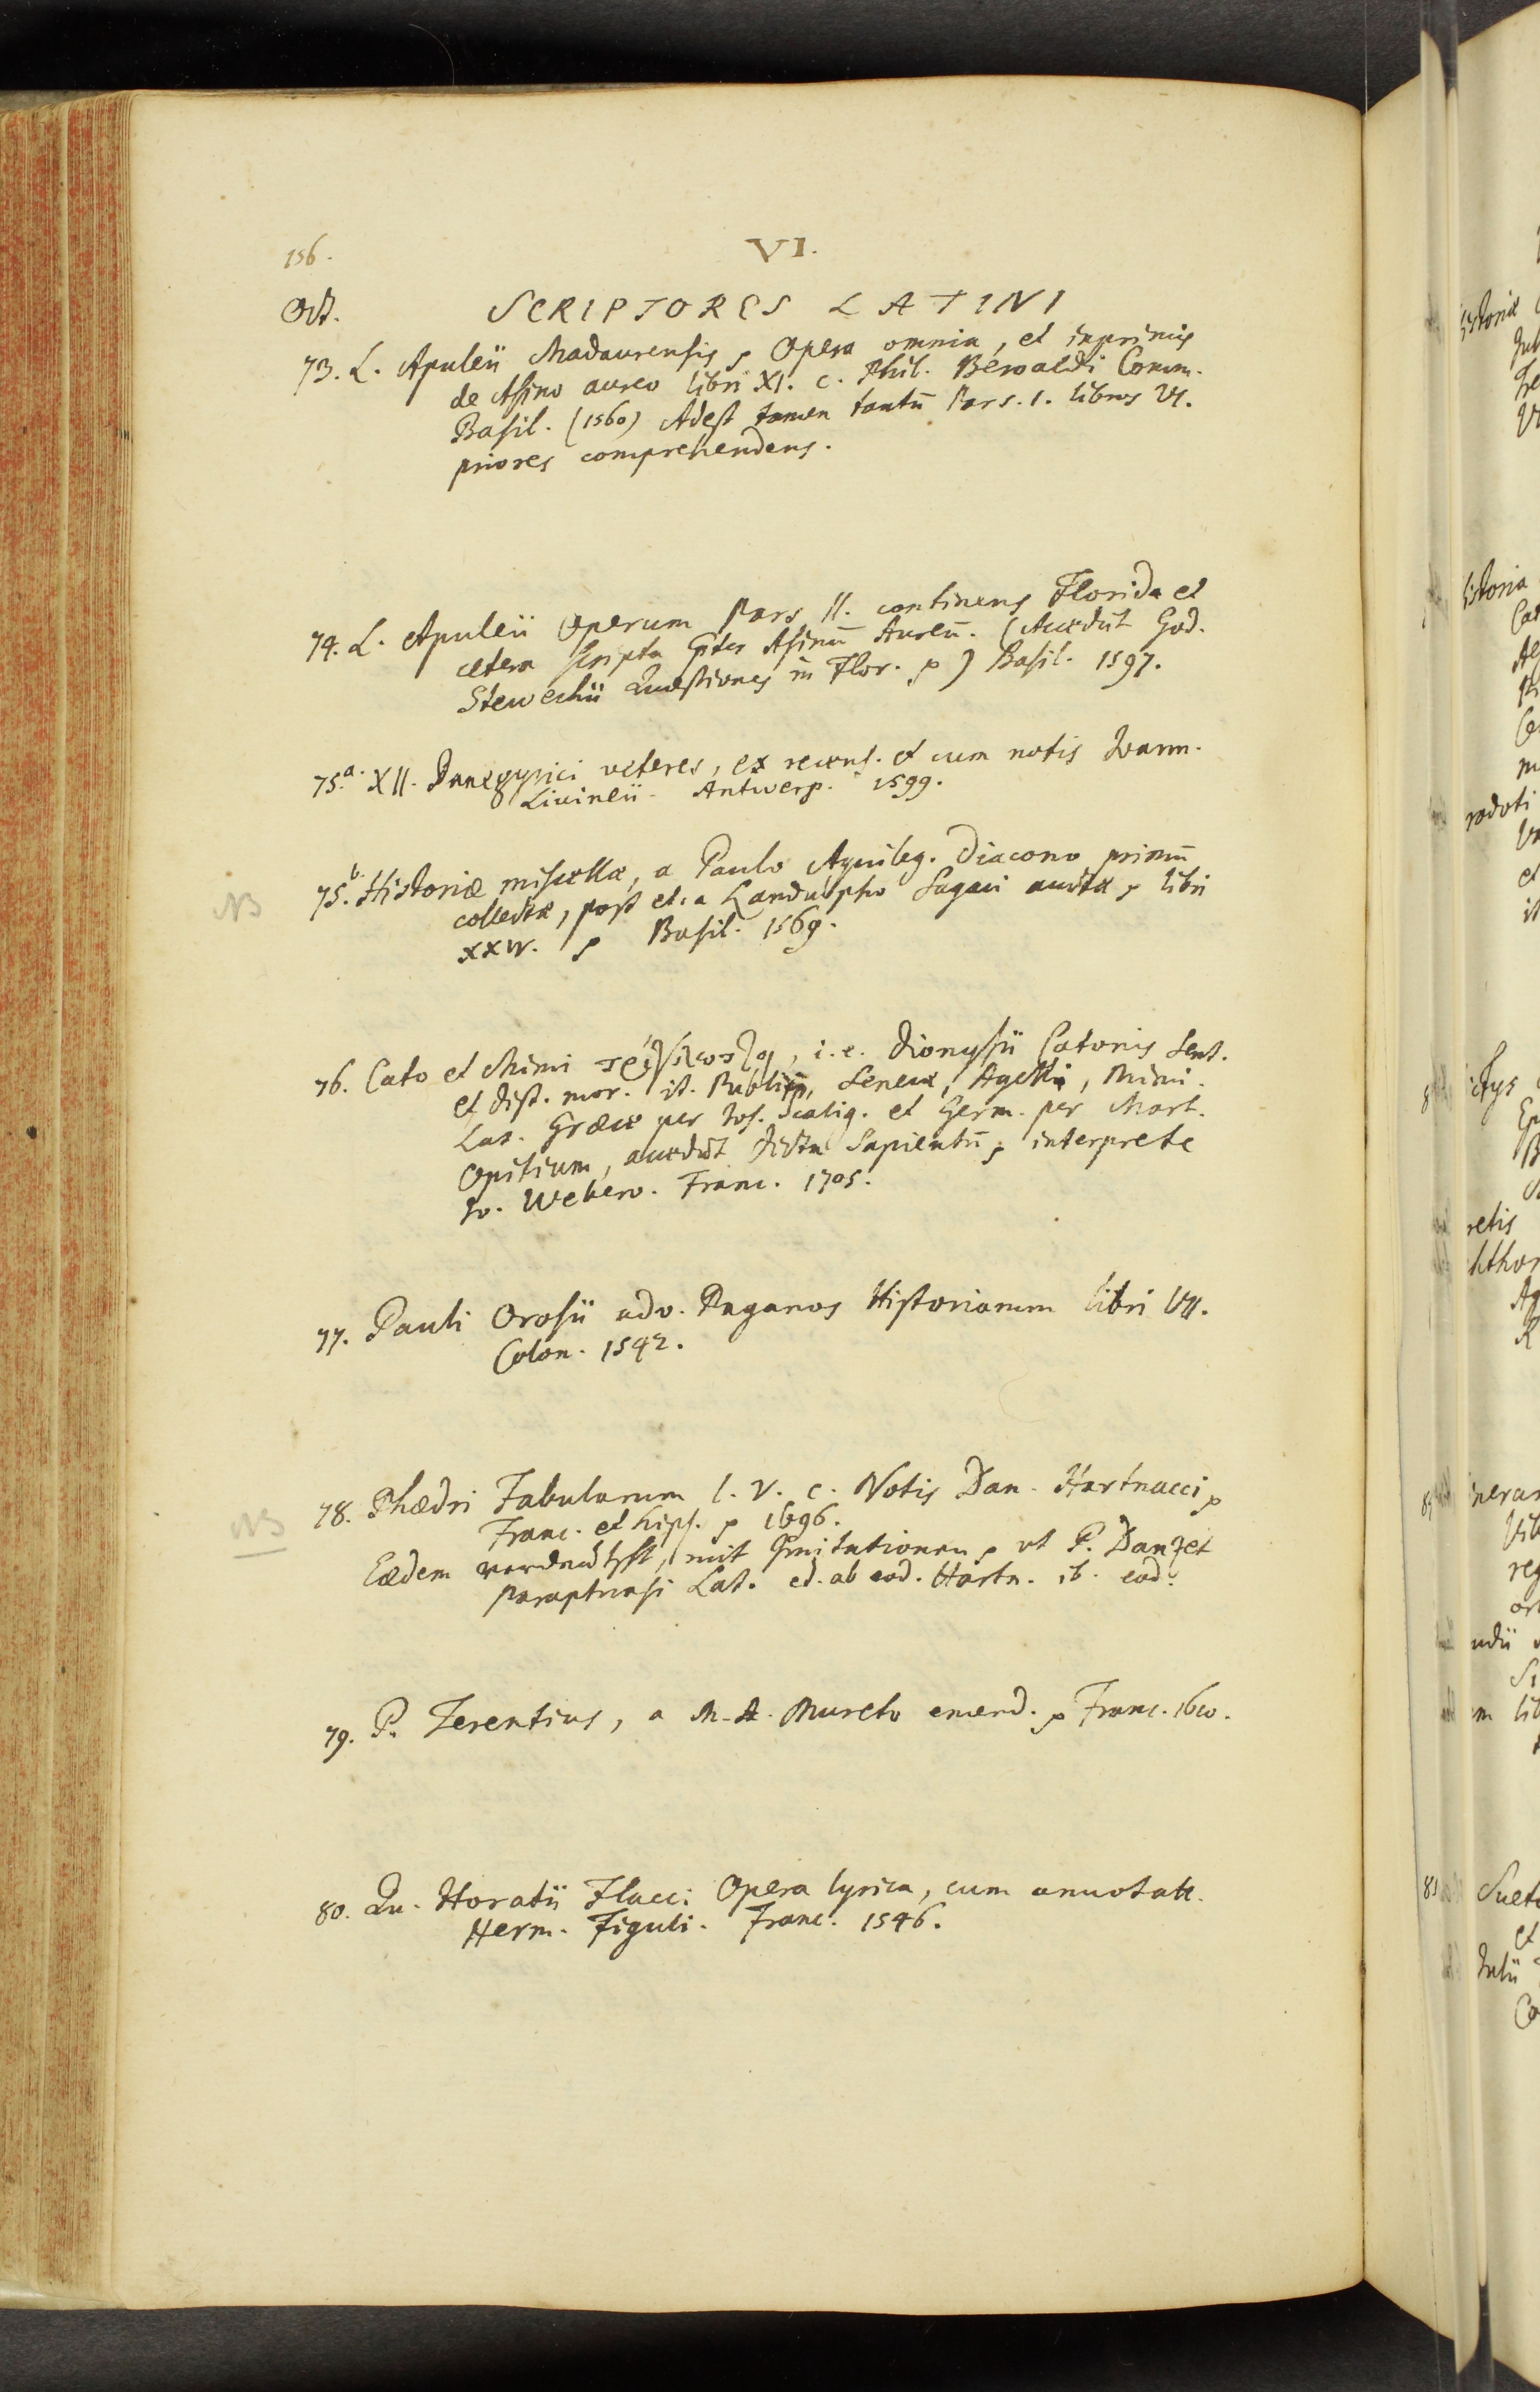 156.
VI.
Oct.
SCRIPTORES LATINI
73. L. Apuleii Madaurensis, Opera omnia, et inprimis
de Asino aureo libri XI. c. Phil. Beroaldi Comm.
Basil. (1560) Adest tamen tantū Pars. 1. libros VI.
priores comprehendens.
74. L. Apuleii Operum Pars II. continens Florida et
cetera scripta pter Asinū Aureū. (Accedūt God.
Stewechii Quæstiones in Flor. ) Basil. 1597.
75.a. XII. Panegyrici veteres, ex recens. et cum notis Joann.
Livineii. Antwerp. 1599.
NB
75.b. Historiæ miscellæ, a Paulo Aquileg. Diacono primū
collectæ, post et. a Landulpho Sagaci auctæ libri
XXIV. Basil. 1569.
76. Cato et Mimi τρίγλωττοι, i.e. Dionysii Catonis Sent.
et dist. mor. it. Publii, Senecæ, Agellii, Mimi.
Lat. Græce per Jos. Scalig. et Germ. per Mart.
Opitium, accedūt dicta Sapientū, interprete
Jo. Webero. Franc. 1705.
77. Pauli Orosii adv. Paganos Historiarum libri VII.
Colon. 1542.
NB
78. Phædri Fabularum l. V. c. Notis Dan. Hartnacci
Franc. et Lips. 1696.
Eædem verdeutscht, mit Imitationen ut P. Danzet
Paraphrasi Lat. ed. ab eod. Hartn. ib. eod.
79. P. Terentius, a M. A. Mureto emend. Franc. 1610.
80. Qu. Horatii Flacci Opera lyrica, cum annotatt.
Herm. Figuli. Franc. 1546.